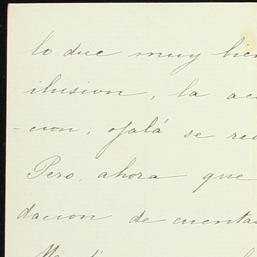 lo que muy bien
ilusion, la
-cion, ojalá se
Pero, ahora que
dacion de cuentas